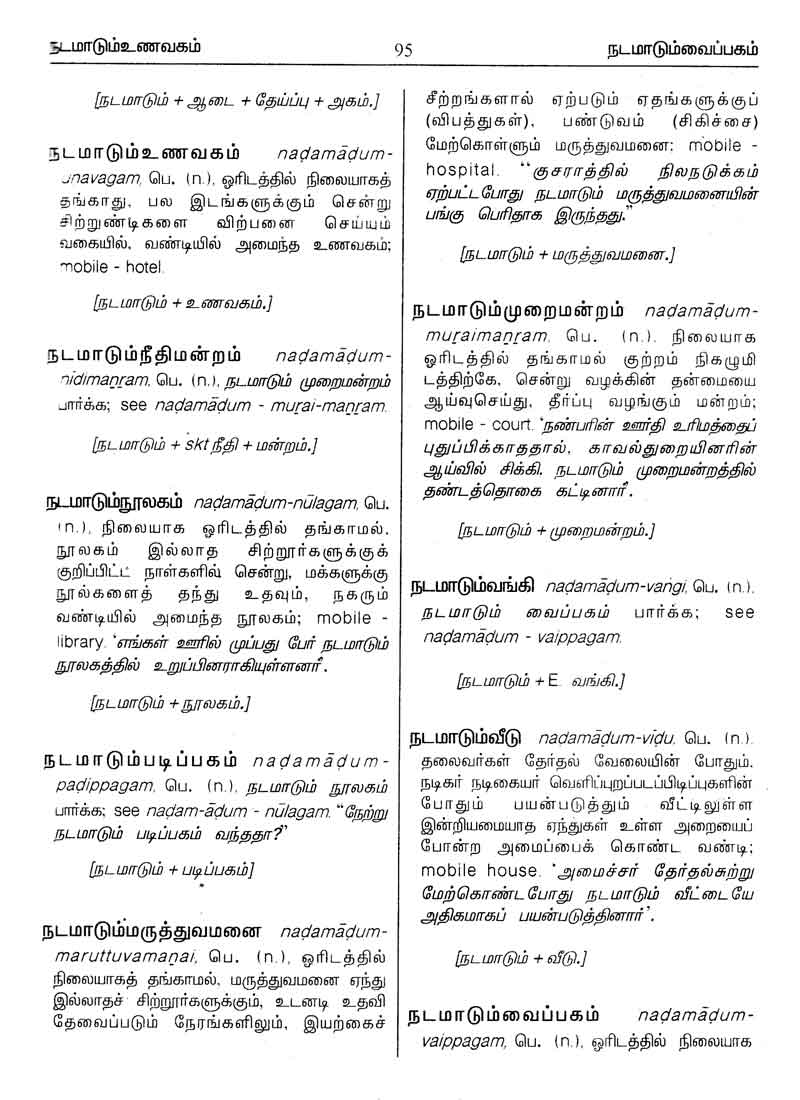 நடமாடும்உணவகம் 95 நடமாடும்வைப்பகம்
[நடமாடும் + ஆடை + தேய்ப்பு + அகம்.]
நடமாடும்உணவகம் naḍamāḍum-
unavagam, பெ. (n.), ஓரிடத்தில் நிலையாகத்
தங்காது, பல இடங்களுக்கும் சென்று
சிற்றுண்டிகளை விற்பனை செய்யும்
வகையில், வண்டியில் அமைந்த உணவகம்;
mobile - hotel.
[நடமாடும் + உணவகம்.]
நடமாடும்நீதிமன்றம் naḍamāḍum-
nidimaṉṟam, பெ. (n.), நடமாடும் முறைமன்றம்
பார்க்க; see naḍamāḍum - muṟai-maṉṟam.
[நடமாடும் + skt நீதி + மன்றம்.]
நடமாடும்நூலகம் naḍamāḍum-nūlagam, பெ.
(n.), நிலையாக ஓரிடத்தில் தங்காமல்,
நூலகம் இல்லாத சிற்றூர்களுக்குக்
குறிப்பிட்ட நாள்களில் சென்று, மக்களுக்கு
நூல்களைத் தந்து உதவும், நகரும்
வண்டியில் அமைந்த நூலகம்; mobile -
library. 'எங்கள் ஊரில் முப்பது பேர் நடமாடும்
நூலகத்தில் உறுப்பினராகியுள்ளனர்'.
[நடமாடும் + நூலகம்.]
நடமாடும்படிப்பகம் naḍamāḍum-
paḍippagam, பெ. (n.), நடமாடும் நூலகம்
பார்க்க; see naḍam-āḍum - nūlagam. “நேற்று
நடமாடும் படிப்பகம் வந்ததா?”
[நடமாடும் + படிப்பகம்]
நடமாடும்மருத்துவமனை naḍamāḍum-
maruttuvamaṉai, பெ. (n.), ஒரிடத்தில்
நிலையாகத் தங்காமல், மருத்துவமனை ஏந்து
இல்லாதச் சிற்றூர்களுக்கும், உடனடி உதவி
தேவைப்படும் நேரங்களிலும், இயற்கைச்
சீற்றங்களால் ஏற்படும் ஏதங்களுக்குப்
(விபத்துகள்), பண்டுவம் (சிகிச்சை)
மேற்கொள்ளும் மருத்துவமனை; mobile -
hospital. “குசராத்தில் நிலநடுக்கம்
ஏற்பட்டபோது நடமாடும் மருத்துவமனையின்
பங்கு பெரிதாக இருந்தது.”
[நடமாடும் + மருத்துவமனை.]
நடமாடும்முறைமன்றம் naḍamāḍum-
muṟaimaṉṟam, பெ. (n.), நிலையாக
ஓரிடத்தில் தங்காமல் குற்றம் நிகழுமி
டத்திற்கே, சென்று வழக்கின் தன்மையை
ஆய்வுசெய்து, தீர்ப்பு வழங்கும் மன்றம்;
mobile - court. 'நண்பரின் ஊர்தி உரிமத்தைப்
புதுப்பிக்காததால், காவல்துறையினரின்
ஆய்வில் சிக்கி, நடமாடும் முறைமன்றத்தில்
தண்டத்தொகை கட்டினார்'.
[நடமாடும் + முறைமன்றம்.]
நடமாடும்வங்கி naḍamāḍum-vaṅgi, பெ. (n.),
நடமாடும் வைப்பகம் பார்க்க; see
naḍamāḍum - vaippagam.
[நடமாடும் + E. வங்கி.]
நடமாடும்வீடு naḍamāḍum-viḍu, பெ. (n.),
தலைவர்கள் தேர்தல் வேலையின் போதும்,
நடிகர் நடிகையர் வெளிப்புறப்படப்பிடிப்புகளின்
போதும் பயன்படுத்தும் வீட்டிலுள்ள
இன்றியமையாத ஏந்துகள் உள்ள அறையைப்
போன்ற அமைப்பைக் கொண்ட வண்டி;
mobile house. 'அமைச்சர் தேர்தல்சுற்று
மேற்கொண்டபோது நடமாடும் வீட்டையே
அதிகமாகப் பயன்படுத்தினார்'.
[நடமாடும் + வீடு.]
நடமாடும்வைப்பகம் naḍamāḍum-
vaippagam, பெ. (n.), ஒரிடத்தில் நிலையாக